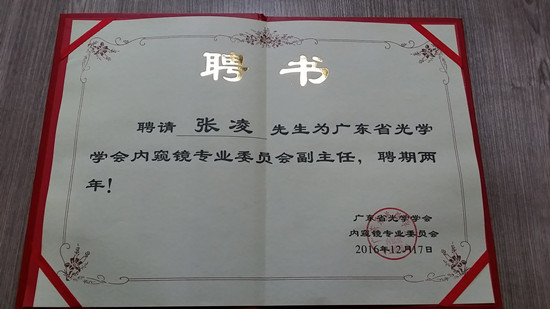 聘书
聘请 张凌 先生为广东省光学
学会内窥镜专业委员会副主任，聘期两
年！
广东省光学学会
内窥镜专业委员会
2016年12月17日